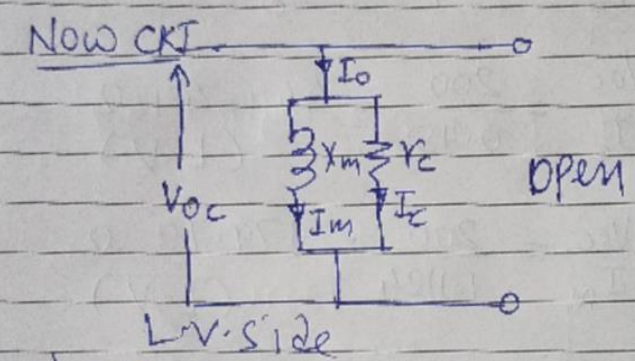 Now CKT
I₀
Xm rc
Open
Voc
Im Ic
L.V. Side